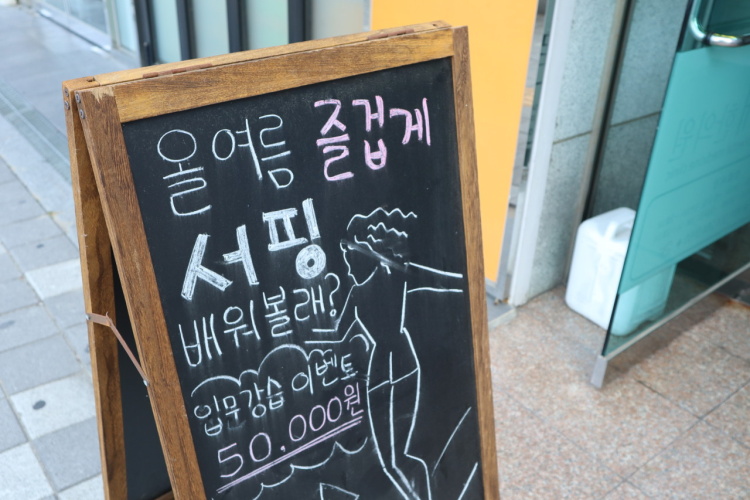 올여름 즐겁게
서핑
배워볼래?
입문강습 이벤트
50.000원